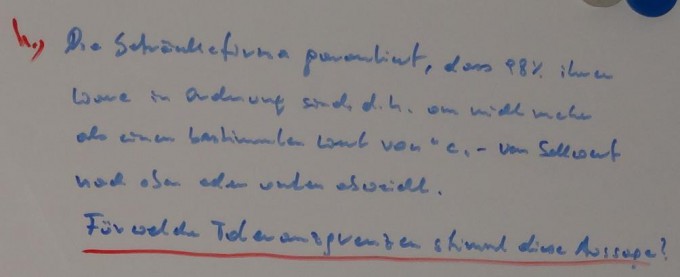 h.) Die Getränkefirma garantiert, dass 98% ihrer
Ware in Ordnung sind, d.h. um nicht mehr
als einen bestimmten Wert von "c" vom Sollwert
nach oben oder unten abweicht.
Für welche Toleranzgrenzen stimmt diese Aussage?